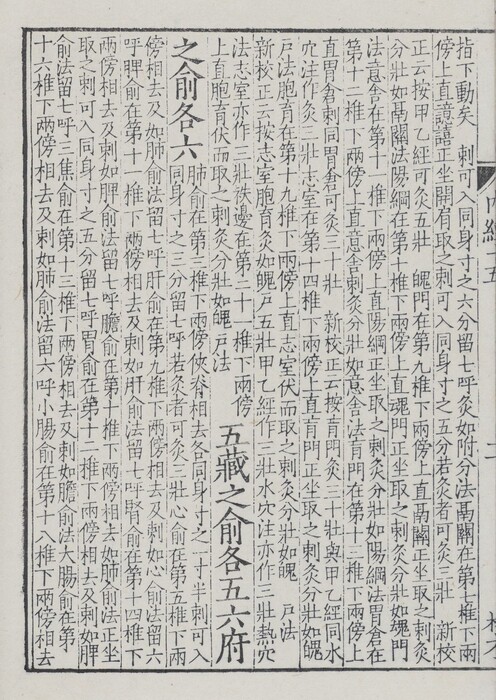 指下動矣　刺可入同身寸之六分留七呼灸如附分法鬲關在第七椎下兩
傍上直譩譆正坐開肩取之刺可入同身寸之五分若灸者可灸三壯　新校
正云按甲乙經可灸五壯　魄門在第九椎下兩傍上直鬲關正坐取之刺灸
分壯如鬲關法陽綱在第十椎下兩傍上直魂門正坐取之刺灸分壯如魂門
法意舍在第十一椎下兩傍上直陽綱正坐取之刺灸分壯如陽綱法胃倉在
第十二椎下兩傍上直意舍刺灸分壯如意舍法肓門在第十三椎下兩傍上
直胃倉刺同胃倉可灸三十壯　新校正云按肓門灸三十壯與甲乙經同水
穴注作灸三壯志室在第十四椎下兩傍上直肓門正坐取之刺灸分壯如魄
戶法胞肓在第十九椎下兩傍上直志室伏而取之刺灸分壯如魄　戶法
新校正云按志室胞肓灸如魄戶五壯甲乙經作三壯水穴注亦作三壯熱穴
法志室亦作三壯秩邊在第二十一椎下兩傍
上直胞肓伏而取之刺灸分壯如魄　戶法
五藏之俞各五六府
之俞各六
肺俞在第三椎下兩傍俠脊相去各同身寸之一寸半刺可入
同身寸之三分留七呼若灸者可灸三壯心俞在第五椎下兩
傍相去及如肺俞法留七呼肝俞在第九椎下兩傍相去及刺如心俞法留六
呼脾俞在第十一椎下兩傍相去及刺如肝俞法留七呼腎俞在第十四椎下
兩傍相去及刺如脾俞法留七呼膽俞在第十椎下兩傍相去如肺俞法正坐
取之刺可入同身寸之五分留七呼胃俞在第十二椎下兩傍相去及刺如脾
俞法留七呼三焦俞在第十三椎下兩傍相去及刺如膽俞法大腸俞在第
十六椎下兩傍相去及刺如肺俞法留六呼小腸俞在第十八椎下兩傍相去